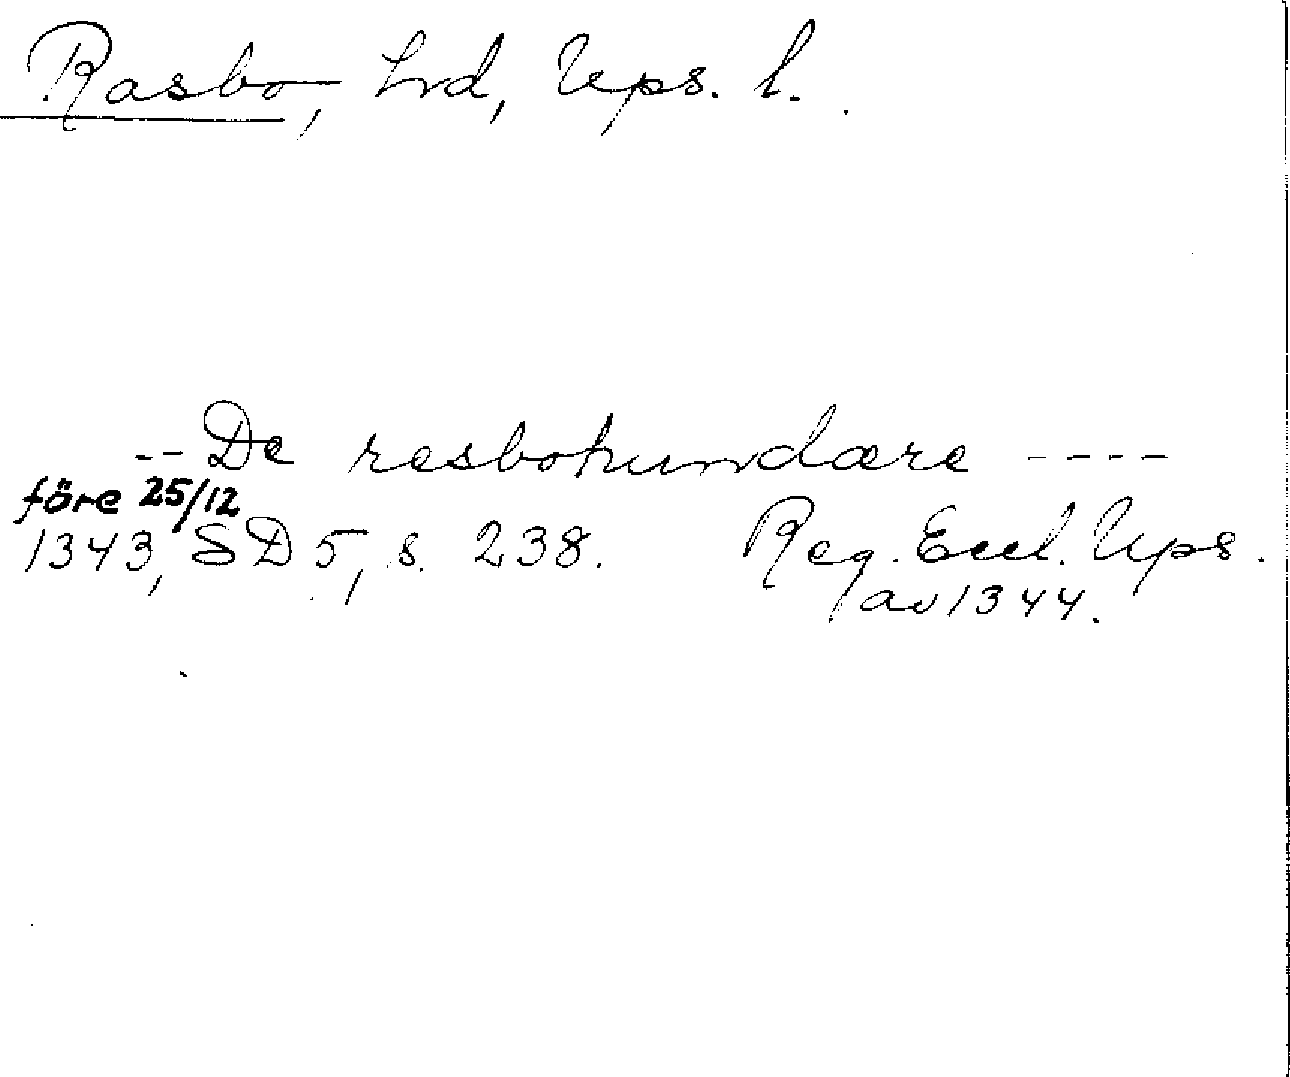 Rasbo, hrd, Ups. l.
-- De resbohundære ----
före 25/12
1343, SD 5, s. 238. Reg. Eccl. Ups.
av 1344.